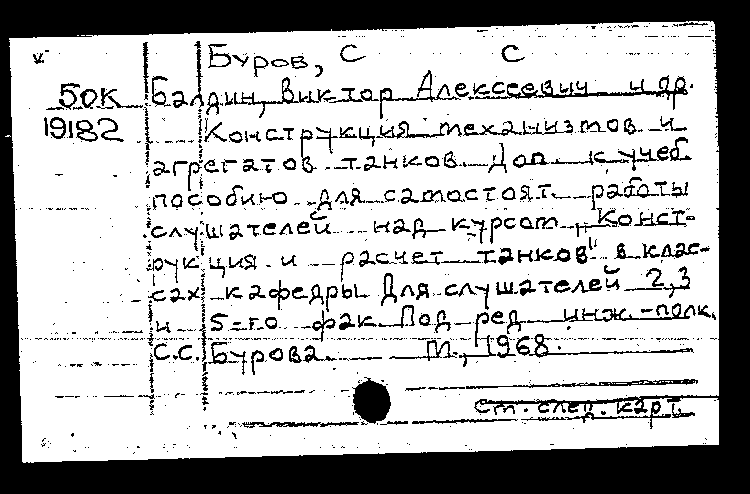 Буров, С С
50К Балдин, Виктор Алексеевич и др.
19182 Конструкция механизмов и
агрегатов танков. Доп. к учеб.
пособию для самостоят. работы
слушателей над курсом „Конст-
рукция и расчет танков" в клас-
сах кафедры Для слушателей 2,3
и 5-го фак. Под ред инж.-полк.
С.С. Бурова. М., 1968.
см. след. карт.